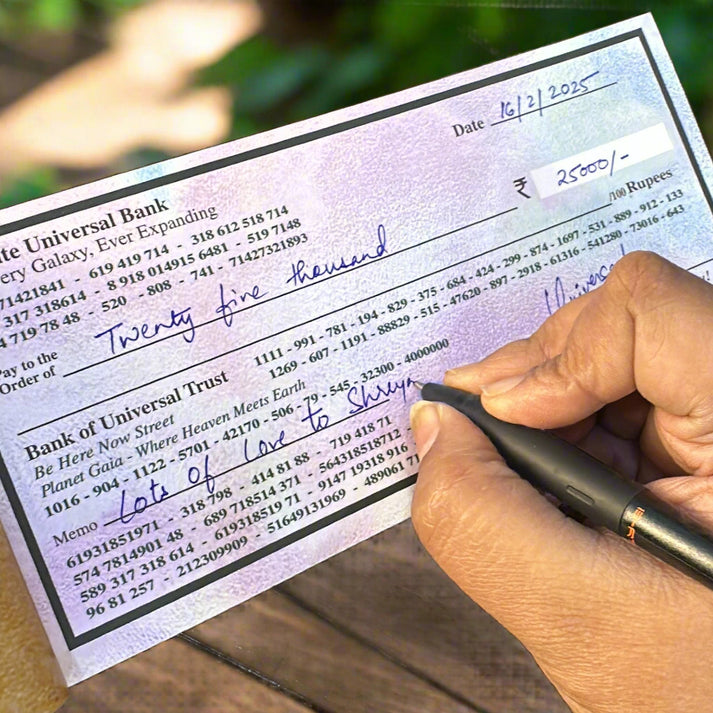 Date 16/2/2025
te Universal Bank
ery Galaxy, Ever Expanding
₹ 25000/-
71421841 - 619 419 714 - 318 612 518 714
317 318614 - 8 918 014915 6481 - 519 7148
4 719 78 48 - 520 - 808 - 741 - 71427321893
/100 Rupees
Pay to the
Order of Twenty five thousand
1111 - 991 - 781 - 194 - 829 - 375 - 684 - 424 - 299 - 874 - 1697 - 531 - 889 - 912 - 133
1269 - 607 - 1191 - 88829 - 515 - 47620 - 897 - 2918 - 61316 - 541280 - 73016 - 643
Bank of Universal Trust
Be Here Now Street
Planet Gaia - Where Heaven Meets Earth
1016 - 904 - 1122 - 5701 - 42170 - 506 - 79 - 545 - 32300 - 4000000
Memo Lots of Love to Shreya
61931851971 - 318 798 - 414 81 88 - 719 418 71
574 7814901 48 - 689 718514 371 - 564318518712
589 317 318 614 - 619318519 71 - 9147 19318 916
96 81 257 - 212309909 - 51649131969 - 489061 71